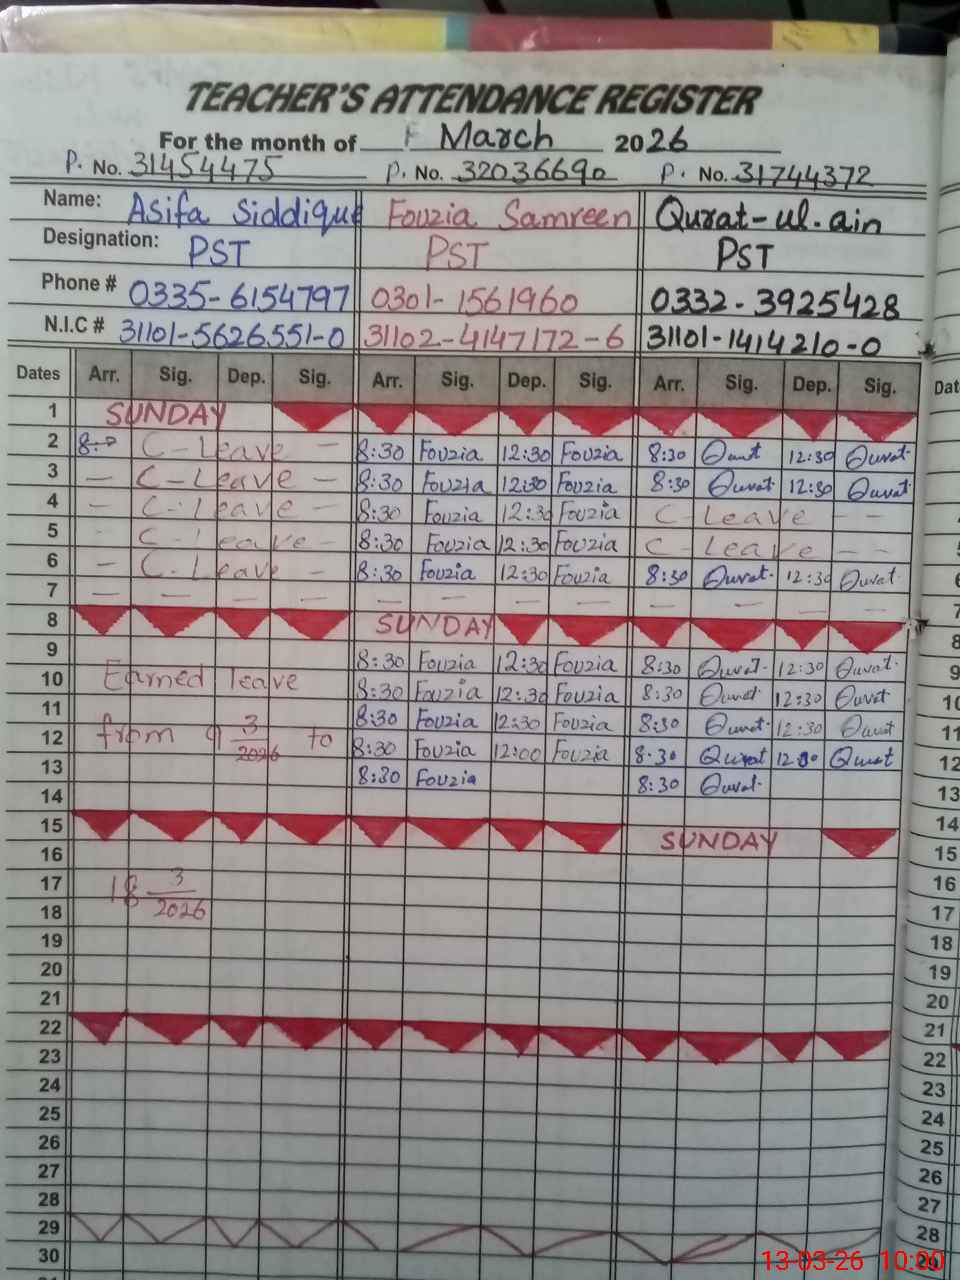 TEACHER'S ATTENDANCE REGISTER
For the month of March 2026
P. No. 31454475 P. No. 32036690 P. No. 31744372
Name: Asifa Siddique Fouzia Samreen Qurat-ul-ain
Designation: PST PST PST
Phone # 0335-6154797 0301-1561960 0332-3925428
N.I.C # 31101-5626551-0 31102-4147172-6 31101-1414210-0
Dates Arr. Sig. Dep. Sig. Arr. Sig. Dep. Sig. Arr. Sig. Dep. Sig.
1 SUNDAY
2 C-Leave - 8:30 Fouzia 12:30 Fouzia 8:30 Qurat 12:30 Qurat
3 - C-Leave - 8:30 Fouzia 12:30 Fouzia 8:30 Qurat 12:30 Qurat
4 - C-Leave - 8:30 Fouzia 12:30 Fouzia C-Leave - -
5 - C-Leave - 8:30 Fouzia 12:30 Fouzia C-Leave - -
6 - C-Leave - 8:30 Fouzia 12:30 Fouzia 8:30 Qurat 12:30 Qurat
7 - - - - - - - - - - - -
8 SUNDAY
9 8:30 Fouzia 12:30 Fouzia 8:30 Qurat 12:30 Qurat
10 Earned leave 8:30 Fouzia 12:30 Fouzia 8:30 Qurat 12:30 Qurat
11 8:30 Fouzia 12:30 Fouzia 8:30 Qurat 12:30 Qurat
12 from 9 3/2026 to 8:30 Fouzia 12:00 Fouzia 8:30 Qurat 12:00 Qurat
13 8:30 Fouzia 8:30 Qurat
14
15 SUNDAY
16
17 18 3/2026
18
19
20
21
22
23
24
25
26
27
28
29
30
13-03-26 10:00